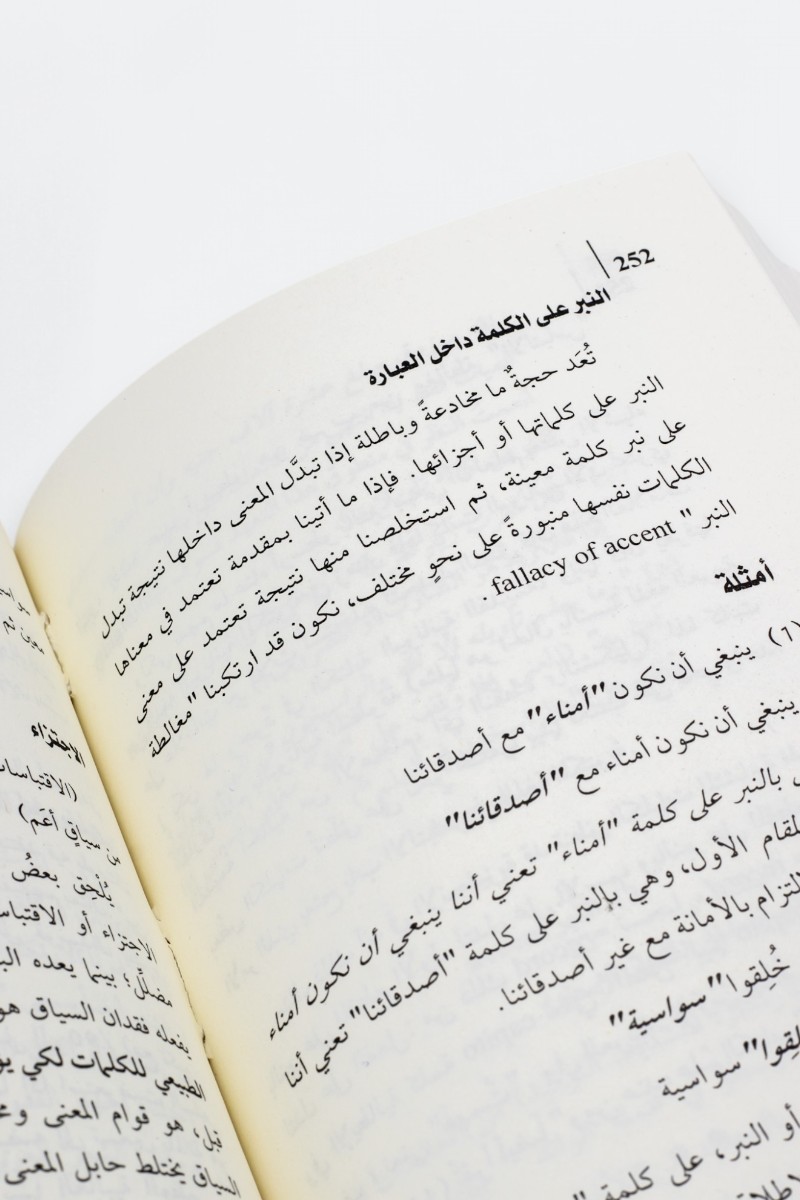 252
النبر على الكلمة داخل العبارة
تُعَد حجةٌ ما مخادعةً وباطلة إذا تبدَّل المعنى داخلها نتيجة تبدل
النبر على كلماتها أو أجزائها. فإذا ما أتينا بمقدمة تعتمد في معناها
على نبر كلمة معينة، ثم استخلصنا منها نتيجة تعتمد على معنى
الكلمات نفسها منبورةً على نحوٍ مختلف، نكون قد ارتكبنا "مغالطة
النبر " fallacy of accent .
أمثلة
(١) ينبغي أن نكون "أمناء" مع أصدقائنا
ينبغي أن نكون أمناء مع "أصدقائنا"
بالنبر على كلمة "أمناء" تعني أننا ينبغي أن نكون أمناء
المقام الأول، وهي بالنبر على كلمة "أصدقائنا" تعني أننا
التزام بالأمانة مع غير أصدقائنا.
خُلِقوا "سواسية"
"سواسية
أو النبر، على كلمة
معين ثم
الاجتزاء
(الاقتباسات
من سياقٍ أعَم)
يُلْحِق بعضُ
الاجتزاء أو الاقتباس
مضلل؛ بينما يعده
يفعله فقدان السياق هو
الطبيعي للكلمات لكي
قبل، هو قوام المعنى
السياق يختلط حابل المعنى